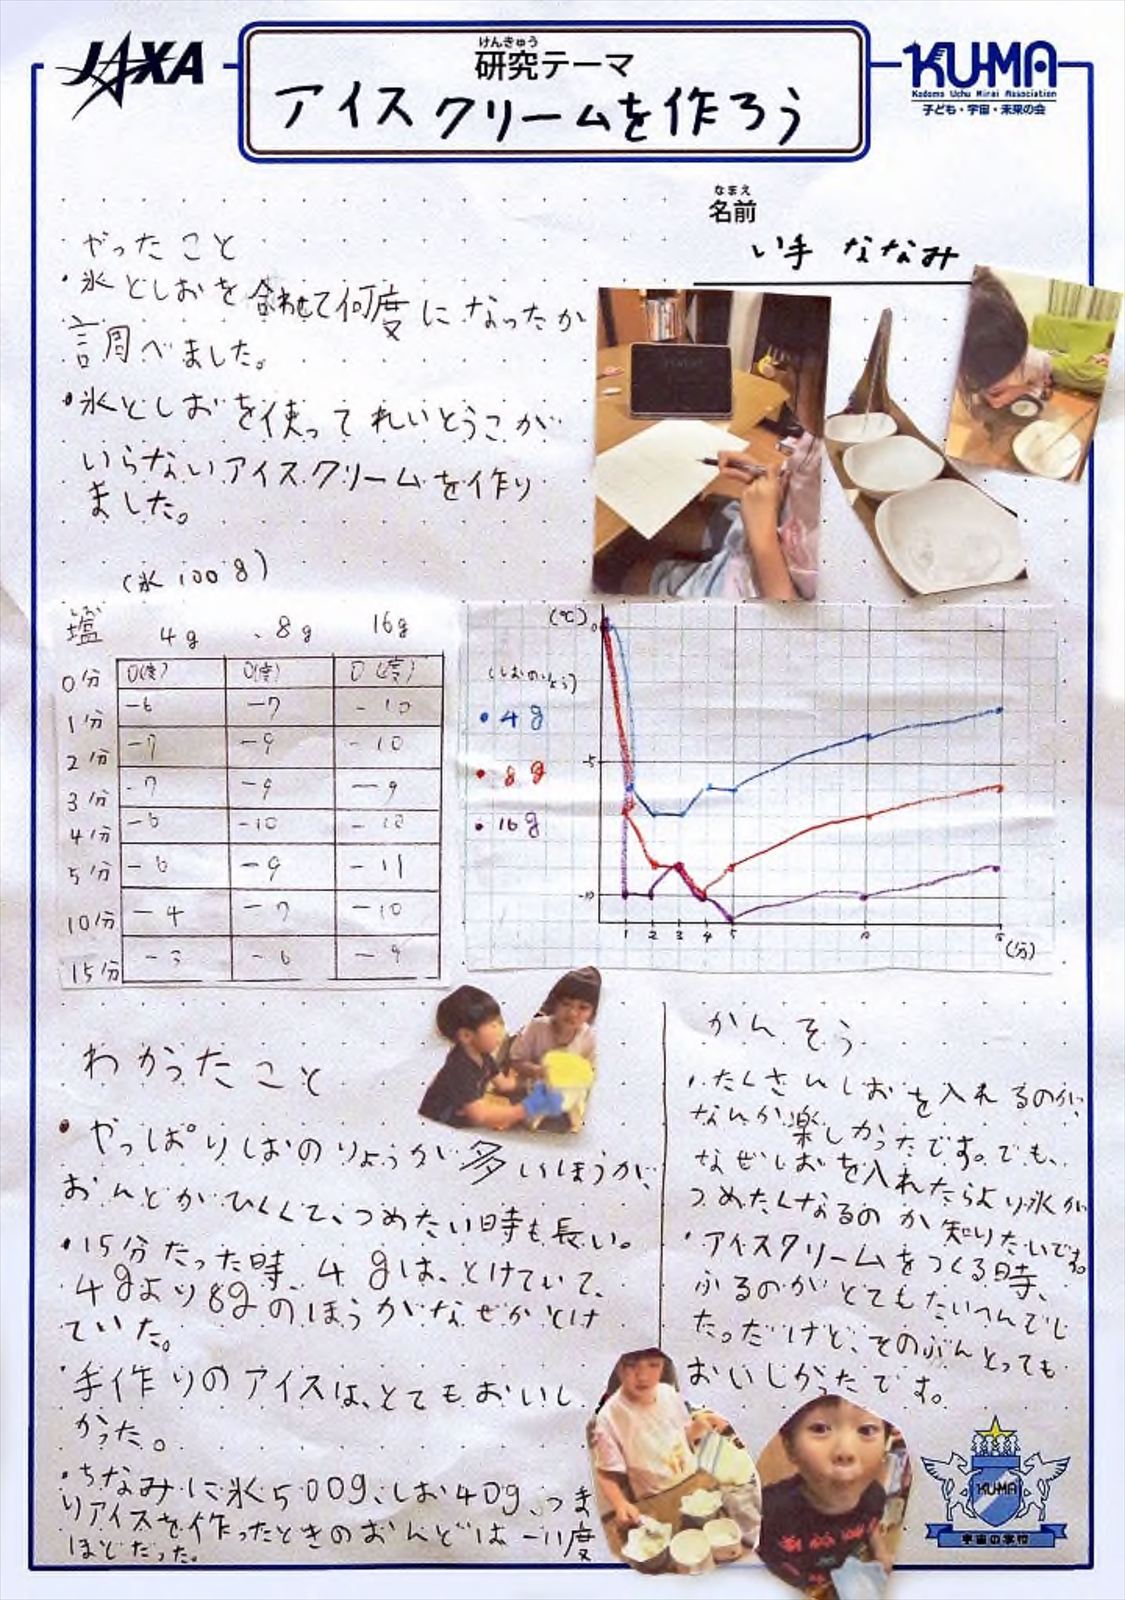 JAXA
けんきゅう
研究テーマ
アイスクリームを作ろう
KU-MA
Kodomo Uchu Mirai Association
子ども・宇宙・未来の会
なまえ
名前
い手 ななみ
やったこと
・氷としおを合わせて何度になったか
調べました。
・氷としおを使ってれいとうこが
いらないアイスクリームを作り
ました。
(氷100g)
塩 4g 8g 16g
0分 0(度) 0(度) 0(度)
1分 -6 -7 -10
2分 -7 -9 -10
3分 -7 -9 -9
4分 -6 -10 -10
5分 -6 -9 -11
10分 -4 -7 -10
15分 -3 -6 -9
(℃)
0
(しおのりょう)
・4g
・8g
・16g
-5
-10
1 2 3 4 5 10 15
(分)
わかったこと
・やっぱりしおのりょうが多いほうが、
おんどがひくくて、つめたい時も長い。
・15分たった時、4gは、とけていて、
4gより8gのほうがなぜかとけ
ていた。
・手作りのアイスは、とてもおいし
かった。
・ちなみに氷500g、しお40g、つま
りアイスを作ったときのおんどは-11度
ほどだった。
かんそう
・たくさんしおを入れるのが、
なんか楽しかったです。でも、
なぜしおを入れたらより氷が
つめたくなるのか知りたいです。
・アイスクリームをつくる時、
ふるのがとてもたいへんでし
ただけど、そのぶんとっても
おいしかったです。
KU-MA
宇宙の学校